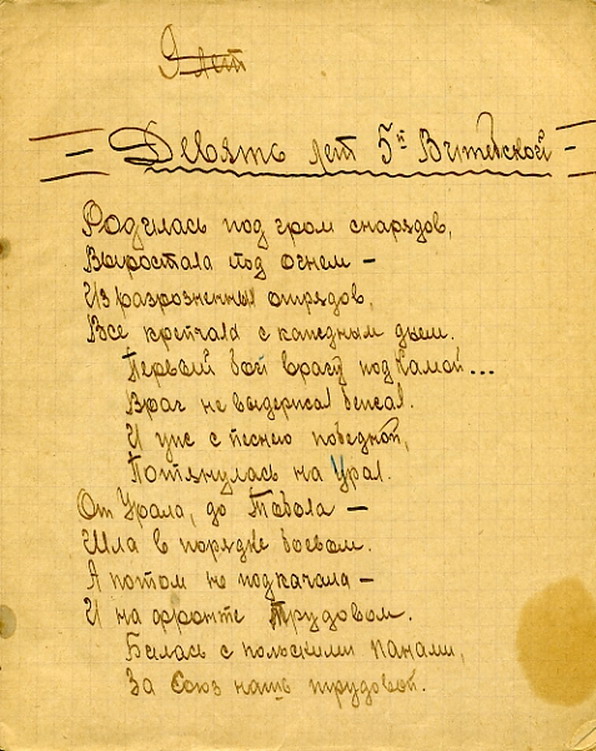 9 лет
Девять лет 5й Витебской
Родилась под гром снарядов,
Выростала под огнем –
Из разрозненных отрядов,
Все крепчала с каждным днем.
Первый бой врагу под Камой...
Враг не выдержал бежал.
И уже с песнею победной,
Потянулась на Урал.
От Урала, до Тобола –
Шла в порядке боевом.
А потом не подкачала –
И на фронте Трудовом.
Билась с польскими панами,
За Союз нашь трудовой.